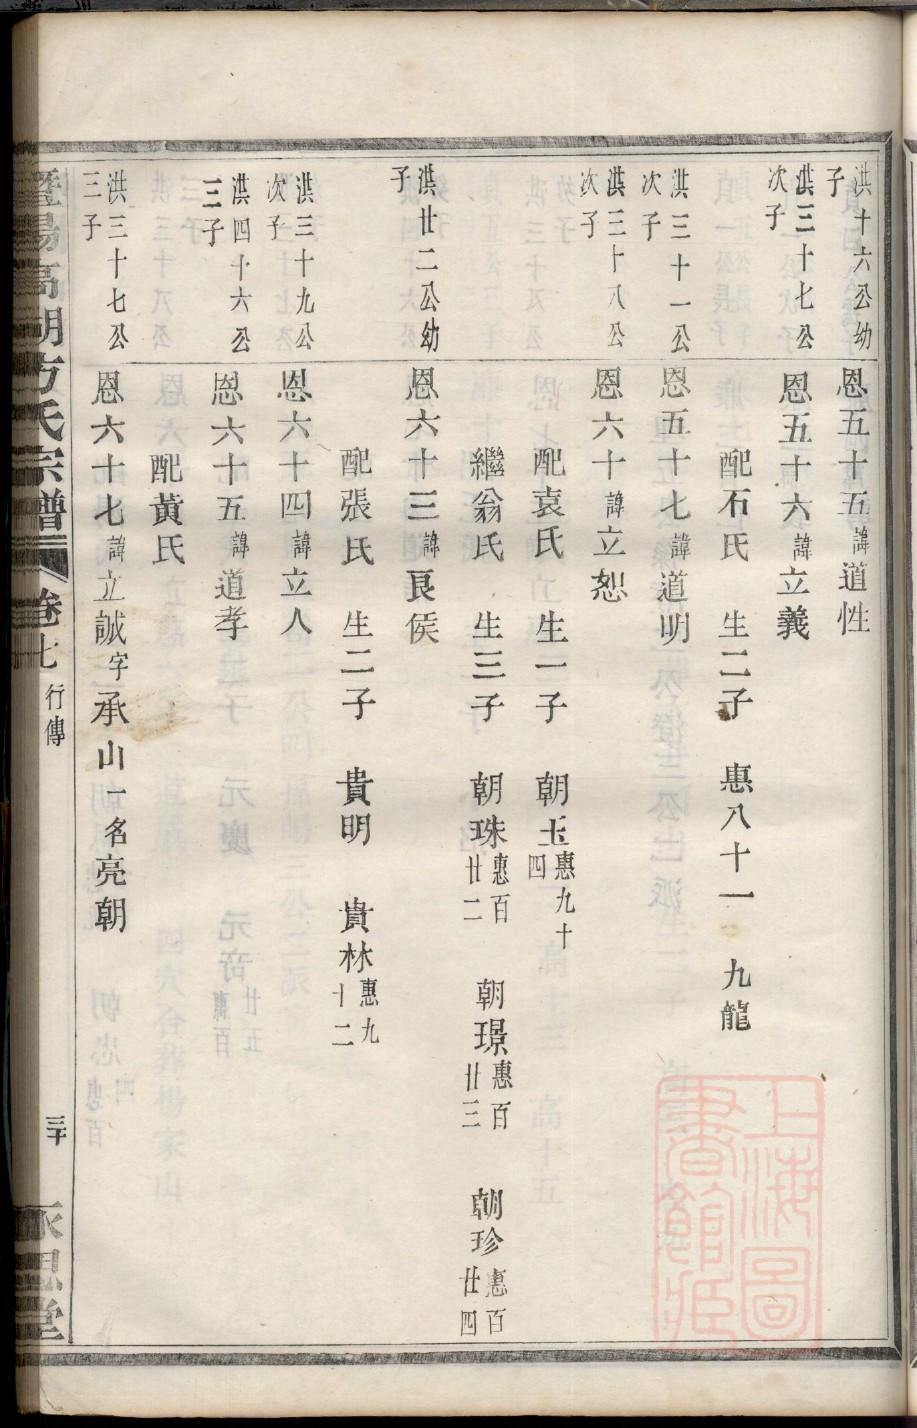 洪十六公幼子
恩五十五諱道性
洪三十七公次子
恩五十六諱立義
配石氏　生二子　惠八十一　九龍
洪三十一公次子
恩五十七諱道明
洪三十八公次子
恩六十諱立恕
配袁氏　生一子　朝玉惠九十四
繼翁氏　生三子　朝珠惠百廿二　朝璟惠百廿三　朝珍惠百廿四
洪廿二公幼子
恩六十三諱良侯
配張氏　生二子　貴明　貴林惠九十二
洪三十九公次子
恩六十四諱立人
洪四十六公三子
恩六十五諱道孝
配黃氏
洪三十七公三子
恩六十七諱立誠字承山一名亮朝
暨陽高湖方氏宗譜
卷七
行傳
三十
永思堂
上海圖書館藏